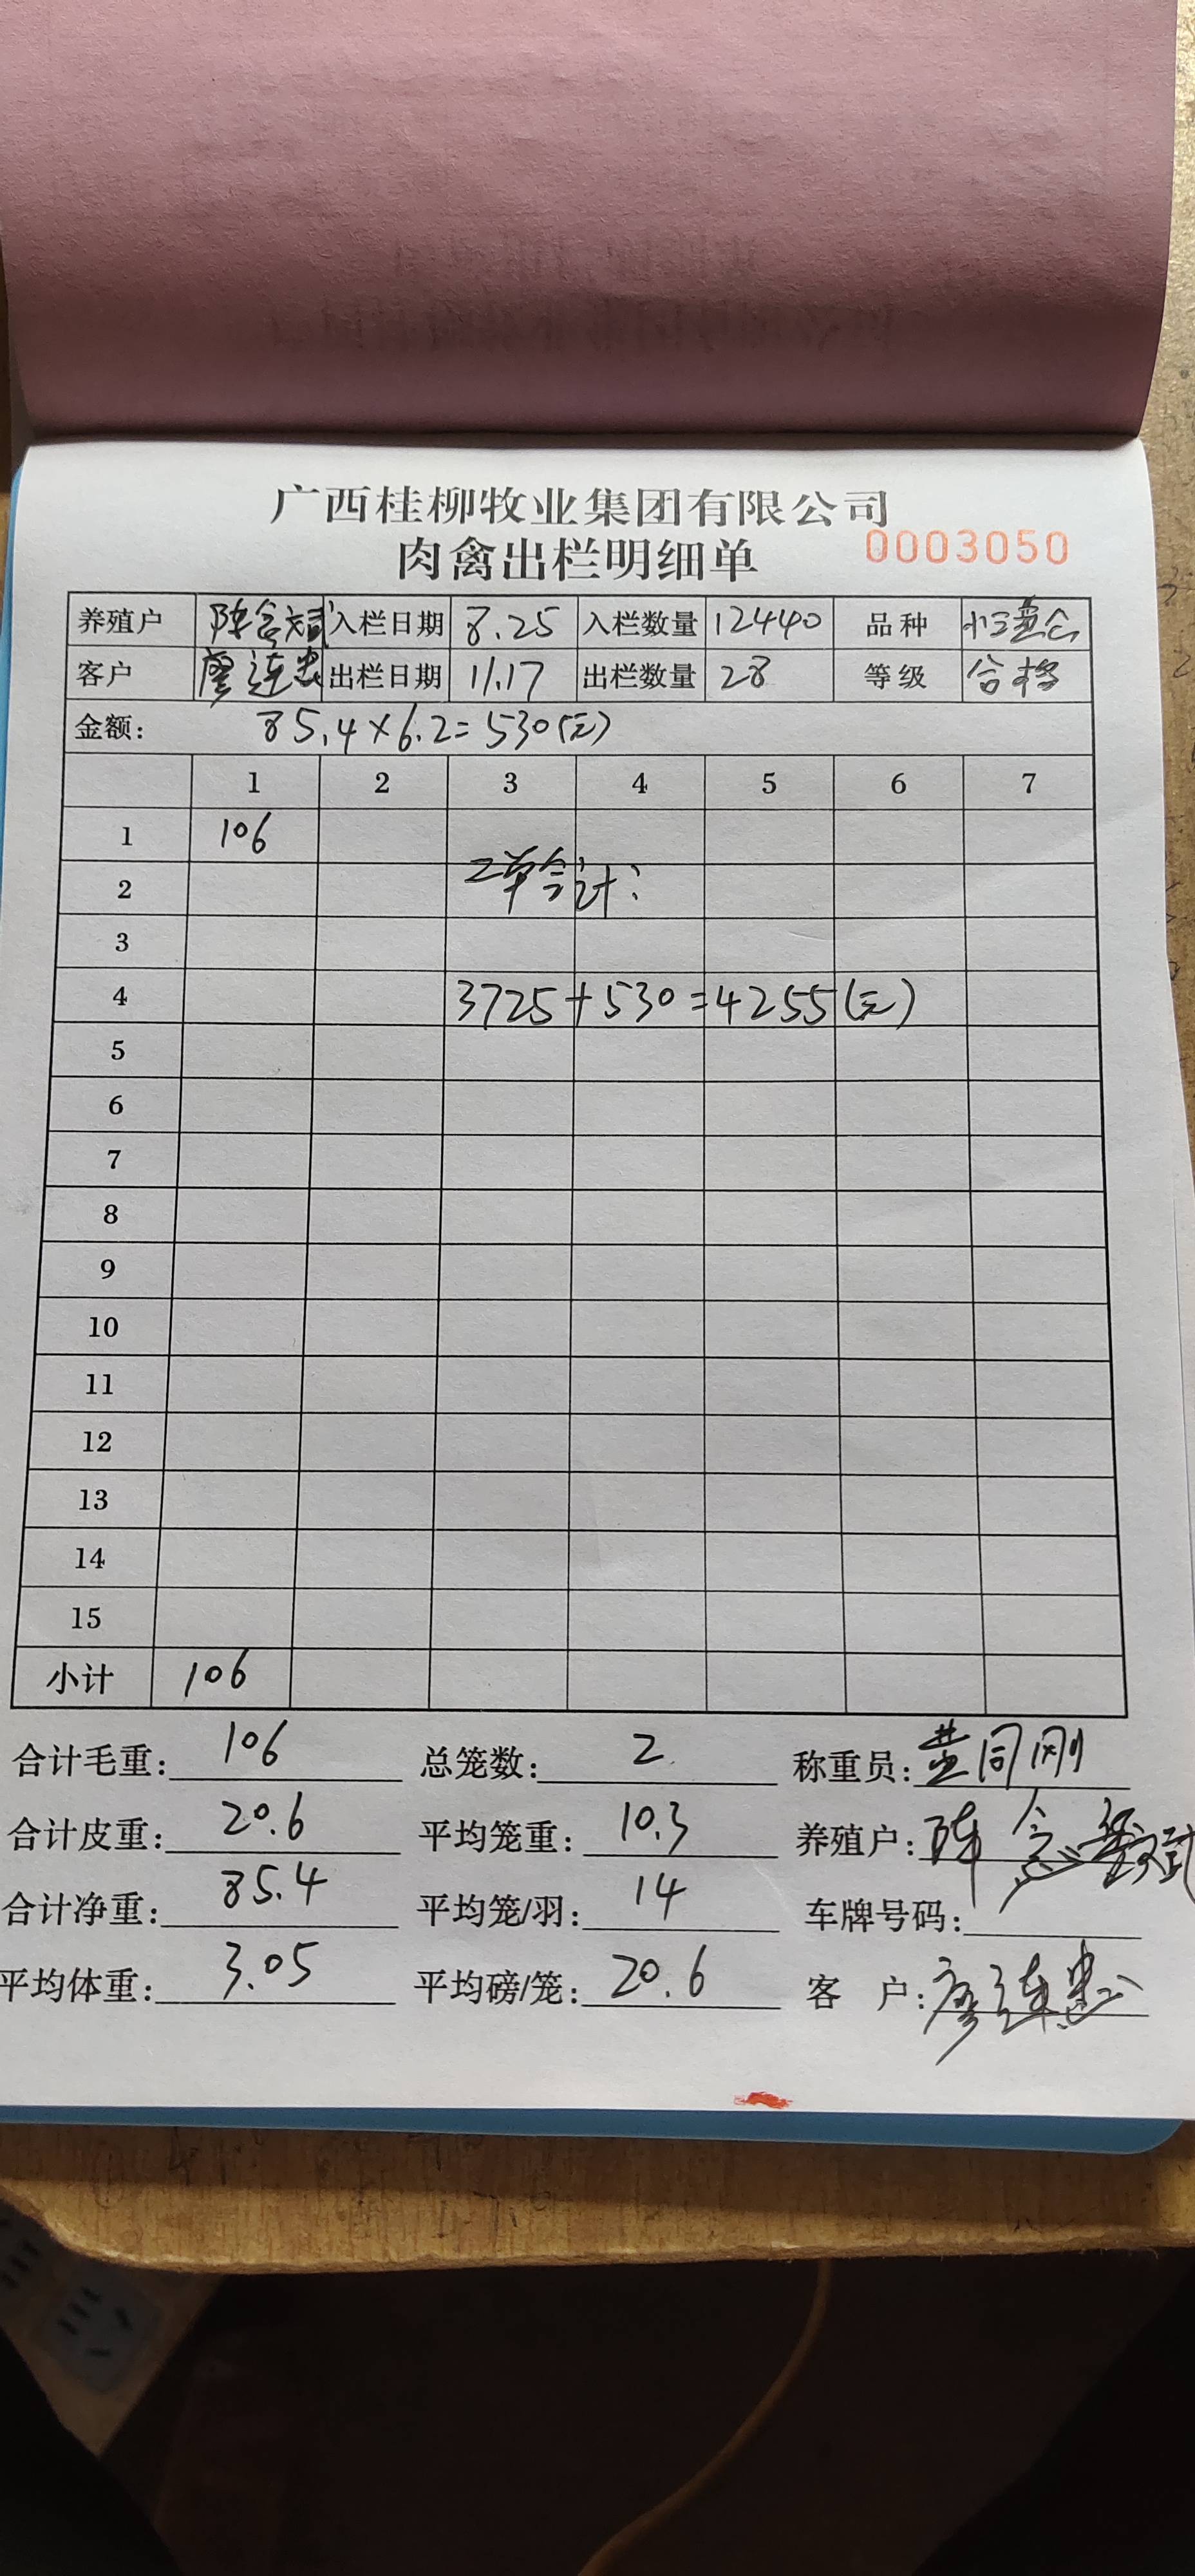 广西桂柳牧业集团有限公司
肉禽出栏明细单 0003050
养殖户 陈 入栏日期 8.25 入栏数量 12440 品种
客户 廖连忠 出栏日期 11.17 出栏数量 28 等级 合格
金额: 85.4×6.2=530(元)
1 2 3 4 5 6 7
1 106
2 2单合计:
3
4 3725+530=4255(元)
5
6
7
8
9
10
11
12
13
14
15
小计 106
合计毛重: 106 总笼数: 2 称重员: 黄同刚
合计皮重: 20.6 平均笼重: 10.3 养殖户: 陈
合计净重: 85.4 平均笼/羽: 14 车牌号码:
平均体重: 3.05 平均磅/笼: 20.6 客 户: 廖连忠